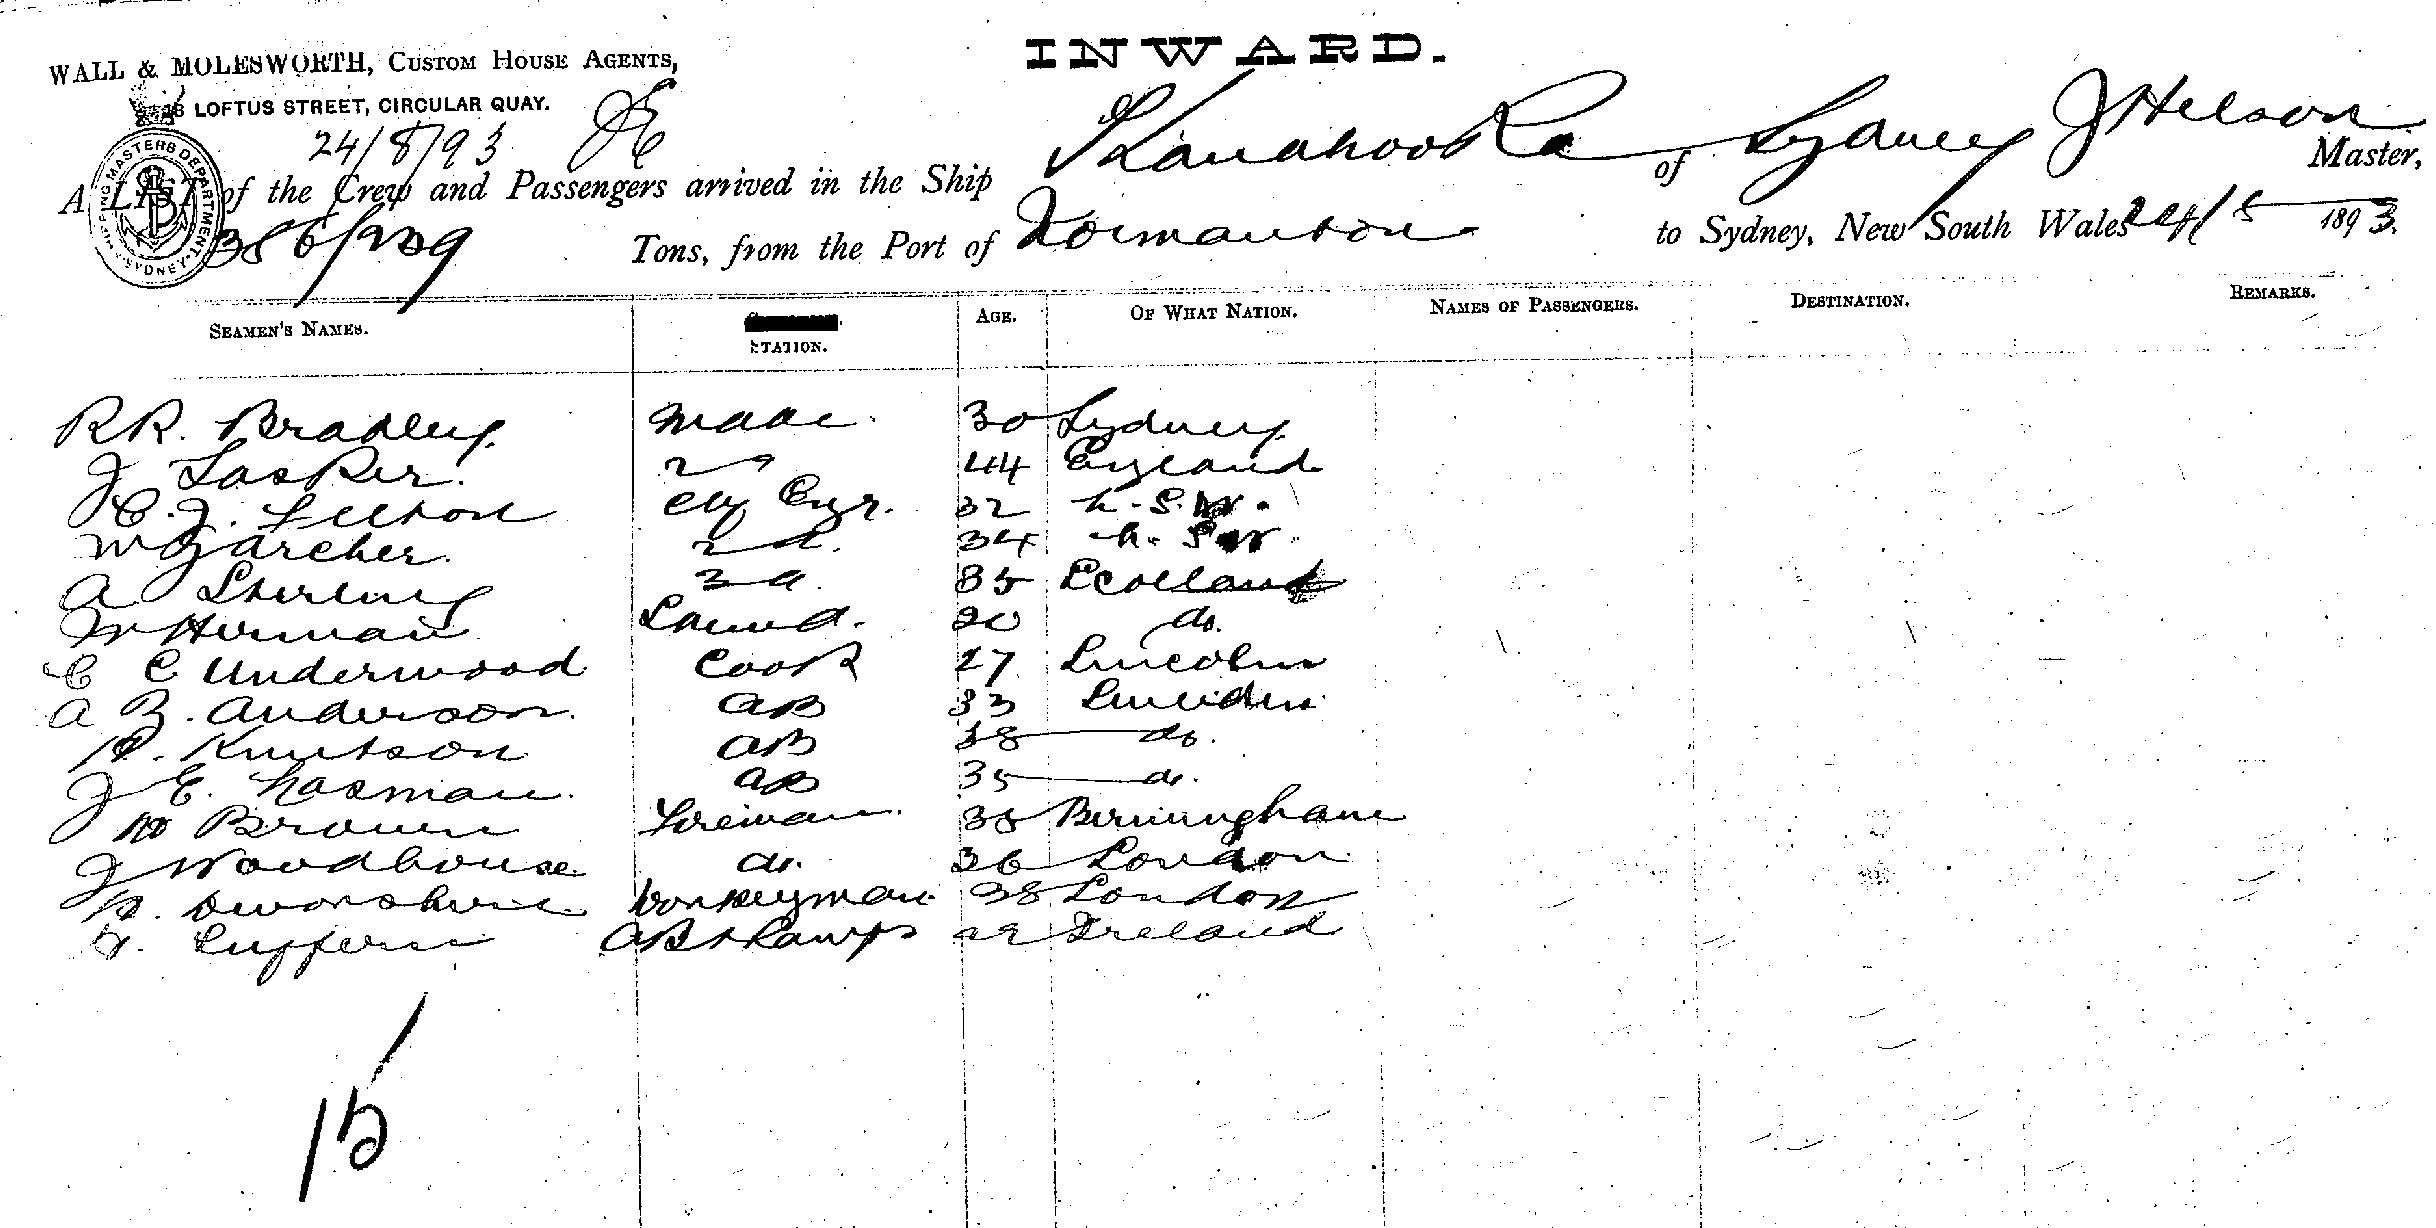 INWARD.
WALL & MOLESWORTH, CUSTOM HOUSE AGENTS,
LOFTUS STREET, CIRCULAR QUAY.
24/8/93
SHIPPING MASTERS DEPARTMENT SYDNEY
A LIST of the Crew and Passengers arrived in the Ship Kanahooka of Sydney J Nelson Master,
386/239 Tons, from the Port of Normanton to Sydney, New South Wales 24/8 1893.
SEAMEN'S NAMES. STATION. AGE. OF WHAT NATION. NAMES OF PASSENGERS. DESTINATION. REMARKS.
R R. Bradley Mate 30 Sydney
J Tasker. 2d 44 England
32 N.S.W.
W G Archer. 2d. 34 N.S.W.
A Sterling 3d. 35 Scotland
Herman do.
C C Underwood Cook 27 Lincoln
A B. Anderson. AB 33 Sweden
Knutson AB 38 do.
J E. AB 35 do.
Brown Fireman 38 Birmingham
J Woodhouse do. 36 London
Devonshire Donkeyman 38 London
AB & Lamps Ireland
15